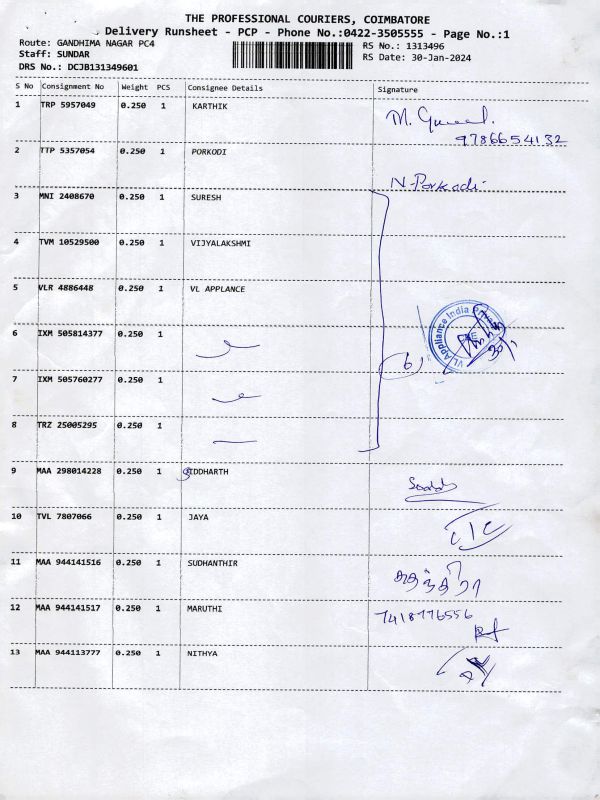 THE PROFESSIONAL COURIERS, COIMBATORE
Delivery Runsheet - PCP - Phone No.:0422-3505555 - Page No.:1
Route: GANDHIMA NAGAR PC4
RS No.: 1313496
Staff: SUNDAR
RS Date: 30-Jan-2024
DRS No.: DCJB131349601
S No Consignment No Weight PCS Consignee Details Signature
1 TRP 5957049 0.250 1 KARTHIK
9786654132
2 TTP 5357054 0.250 1 PORKODI N.Porkodi
3 MNI 2408670 0.250 1 SURESH
4 TVM 10529500 0.250 1 VIJYALAKSHMI
5 VLR 4886448 0.250 1 VL APPLANCE
VL Appliance India
6 IXM 505814377 0.250 1
6)
7 IXM 505760277 0.250 1
8 TRZ 25005295 0.250 1
9 MAA 298014228 0.250 1 SIDDHARTH
10 TVL 7807066 0.250 1 JAYA
11 MAA 944141516 0.250 1 SUDHANTHIR
12 MAA 944141517 0.250 1 MARUTHI 7418776556
13 MAA 944113777 0.250 1 NITHYA